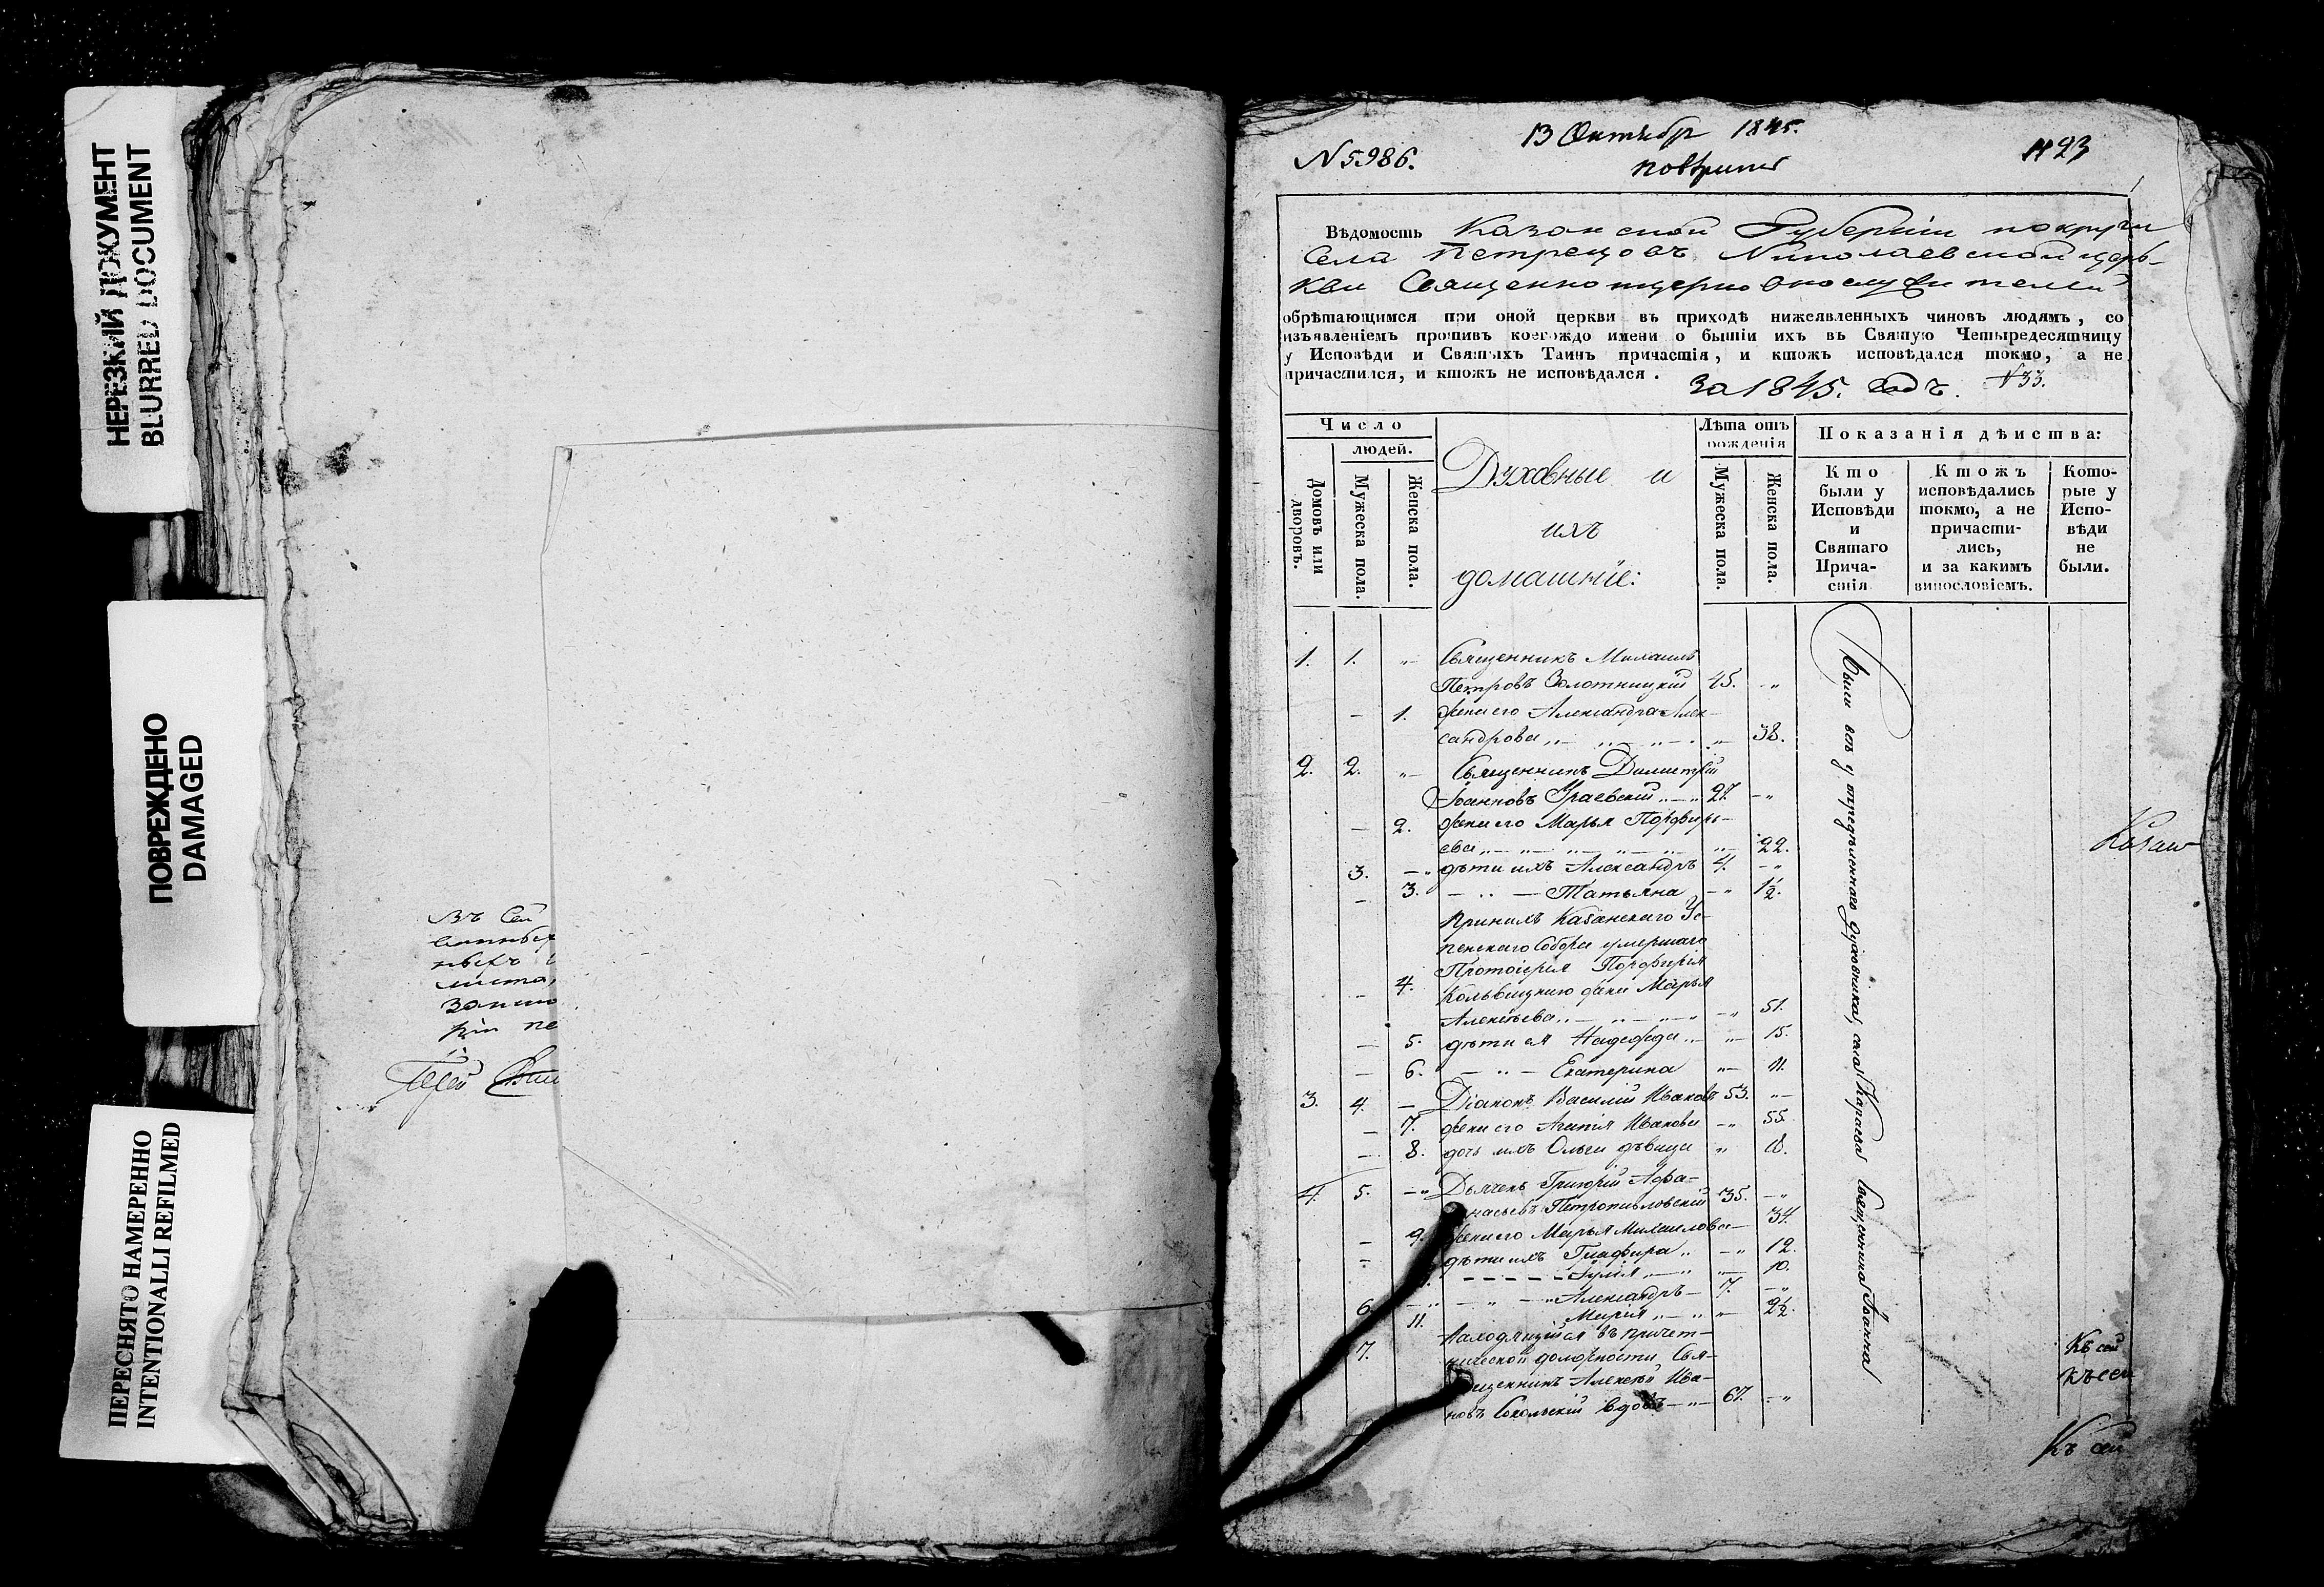 НЕРЕЗКИЙ ДОКУМЕНТ
BLURRED DOCUMENT
ПОВРЕЖДЕНО
DAMAGED
ПЕРЕСНЯТО НАМЕРЕННО
INTENTIONALLI REFILMED
Въ Сей
листа,
N 5986.
13 Октября 1845.
423
Вѣдомость Казанской Губерніи
Села Петрецовъ Николаевской цер-
кви Священно церковнослужителей
обрѣтающимся при оной церкви въ приходѣ нижеявленныхъ чиновъ людямъ, со
изъявленіемъ противъ коегождо имени о бытіи ихъ въ Святую Четыредесятницу
у Исповѣди и Святыхъ Таинъ причастія, и ктожъ исповѣдался токмо, а не
причастился, и ктожъ не исповѣдался.
За 1845. Годъ. N 33.
Число
людей.
Домовъ или дворовъ.
Мужеска пола.
Женска пола.
Духовные и
ихъ
домашніе:
Лѣта отъ
рожденія
Мужеска пола.
Женска пола.
Показанія дѣиства:
Кто
были у
Исповѣди
и
Святаго
Прича-
стія
Ктожъ
исповѣдались
токмо, а не
причасти-
лись,
и за какимъ
винословіемъ.
Кото-
рые у
Испо-
вѣди
не
были.
1. 1. „ Священникъ Михаилъ
Петровъ Золотницкій 45. „
– 1. жена его Александра Алек-
сандрова „ 38.
2. 2. „ Священникъ Димитрій
Іоанновъ Ураевскій 27. „
– 2. жена его Марья Порфирь-
ева „ 22.
3. – дѣти ихъ Александръ 4. „
– 3. Татьяна „ 1/2.
Казанскаго Ус-
пенскаго Собора умершаго
Протоіерея Порфирія
– 4. жена Марья
Алексѣева „ 51.
– 5. дѣти ея Надежда „ 15.
– 6. Екатерина „ 11.
3. 4. – Діаконъ Василій Ивановъ 53. „
– 7. жена его Ивановна „ 55.
– 8. дочь ихъ Ольга дѣвица „ 18.
4. 5. „ Дьячекъ Григорій Афа-
насьевъ Петропавловскій 35. „
– 9. жена его Марья Михаилова 34.
– дѣти ихъ Глафира „ 12.
Юлія „ 10.
6. Александръ 7. „
11. Марія „ 2 1/2.
7. Находящійся въ причет-
нической должности Свя-
щенникъ Алексѣй Ива-
новъ Сокольскій вдовъ 67. „
Были всѣ у опредѣленнаго духовника, села Караева Священника Іоанна
Казан
Къ сей
Къ сей
Къ сей